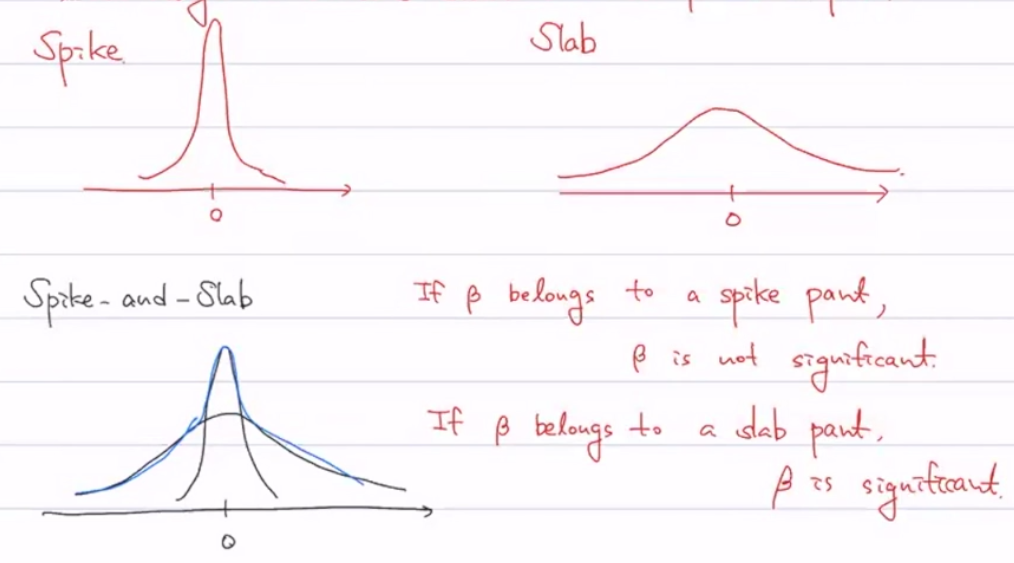 Spike
Slab
0
0
Spike-and-Slab
If β belongs to a spike part,
β is not significant.
If β belongs to a slab part,
β is significant.
0